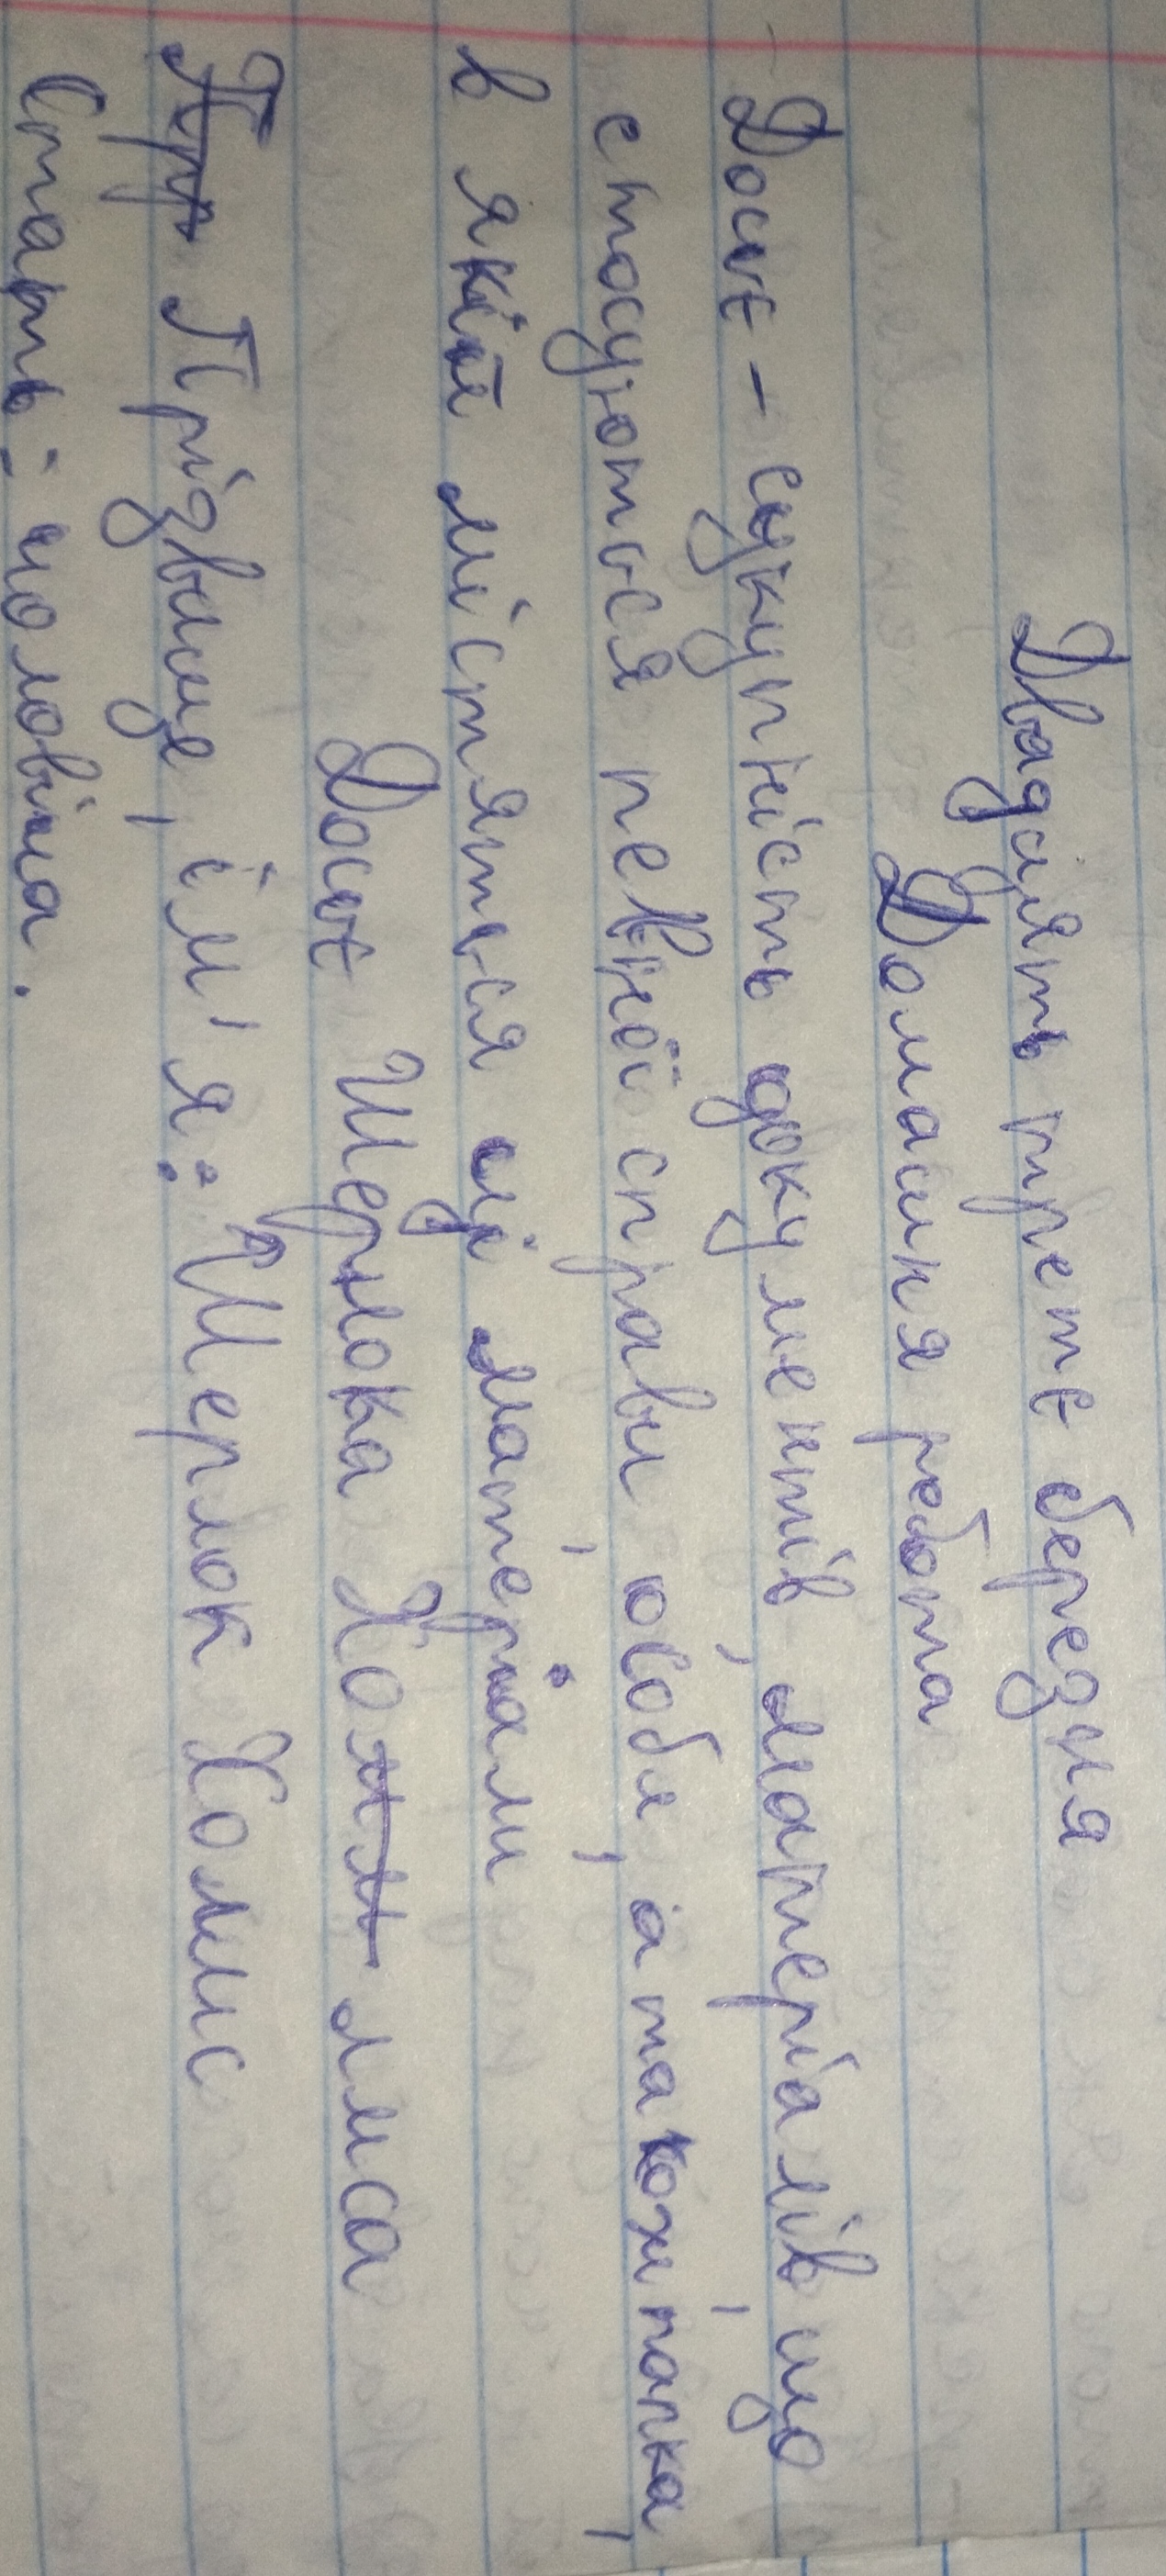 Двадцять третє березня
Домашня робота
Досьє - сукупність документів, матеріалів, що
стосуються певної справи, особи, а також папка,
в якій містяться ці матеріали
Досьє Шерлока Холмса
Прізвище, ім'я: Шерлок Холмс
Стать: чоловіча.